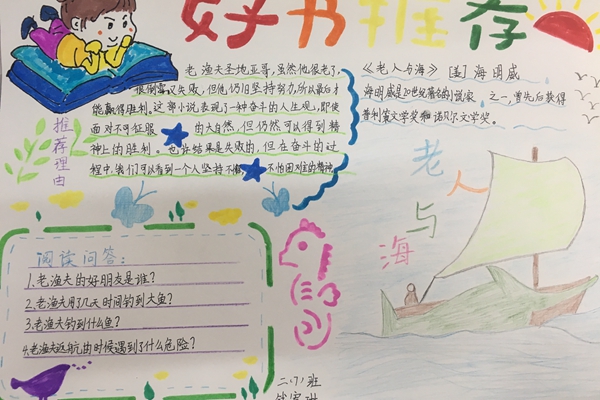 好书推荐
推荐理由
老渔夫圣地亚哥，虽然他很老了，
很倒霉又失败，但他仍旧坚持努力，所以最后才
能赢得胜利。这部小说表现了一种奋斗的人生观，即使
面对不可征服的大自然，但仍然可以得到精
神上的胜利。也许结果是失败的，但在奋斗的过
程中，我们可以看到一个人坚持不懈 不怕困难的精神
《老人与海》【美】海明威
海明威是20世纪著名的小说家之一，曾先后获得
普利策文学奖和诺贝尔文学奖。
老人与海
阅读问答：
1.老渔夫的好朋友是谁？
2.老渔夫用了几天时间钓到大鱼？
3.老渔夫钓到什么鱼？
4.老渔夫返航的时候遇到了什么危险？
二.(7)班